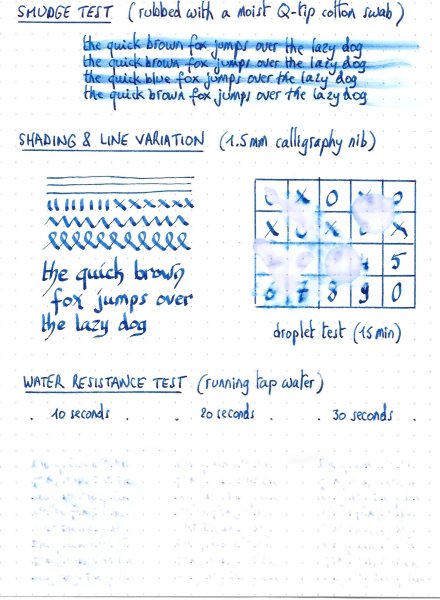 SMUDGE TEST (rubbed with a moist Q-tip cotton swab)
the quick brown fox jumps over the lazy dog
the quick brown fox jumps over the lazy dog
the quick blue fox jumps over the lazy dog
the quick brown fox jumps over the lazy dog
SHADING & LINE VARIATION (1.5mm calligraphy nib)
the quick brown
fox jumps over
the lazy dog
O X O X O
X O X O X
4 5
6 7 8 9 0
droplet test (15 min)
WATER RESISTANCE TEST (running tap water)
10 seconds 20 seconds 30 seconds